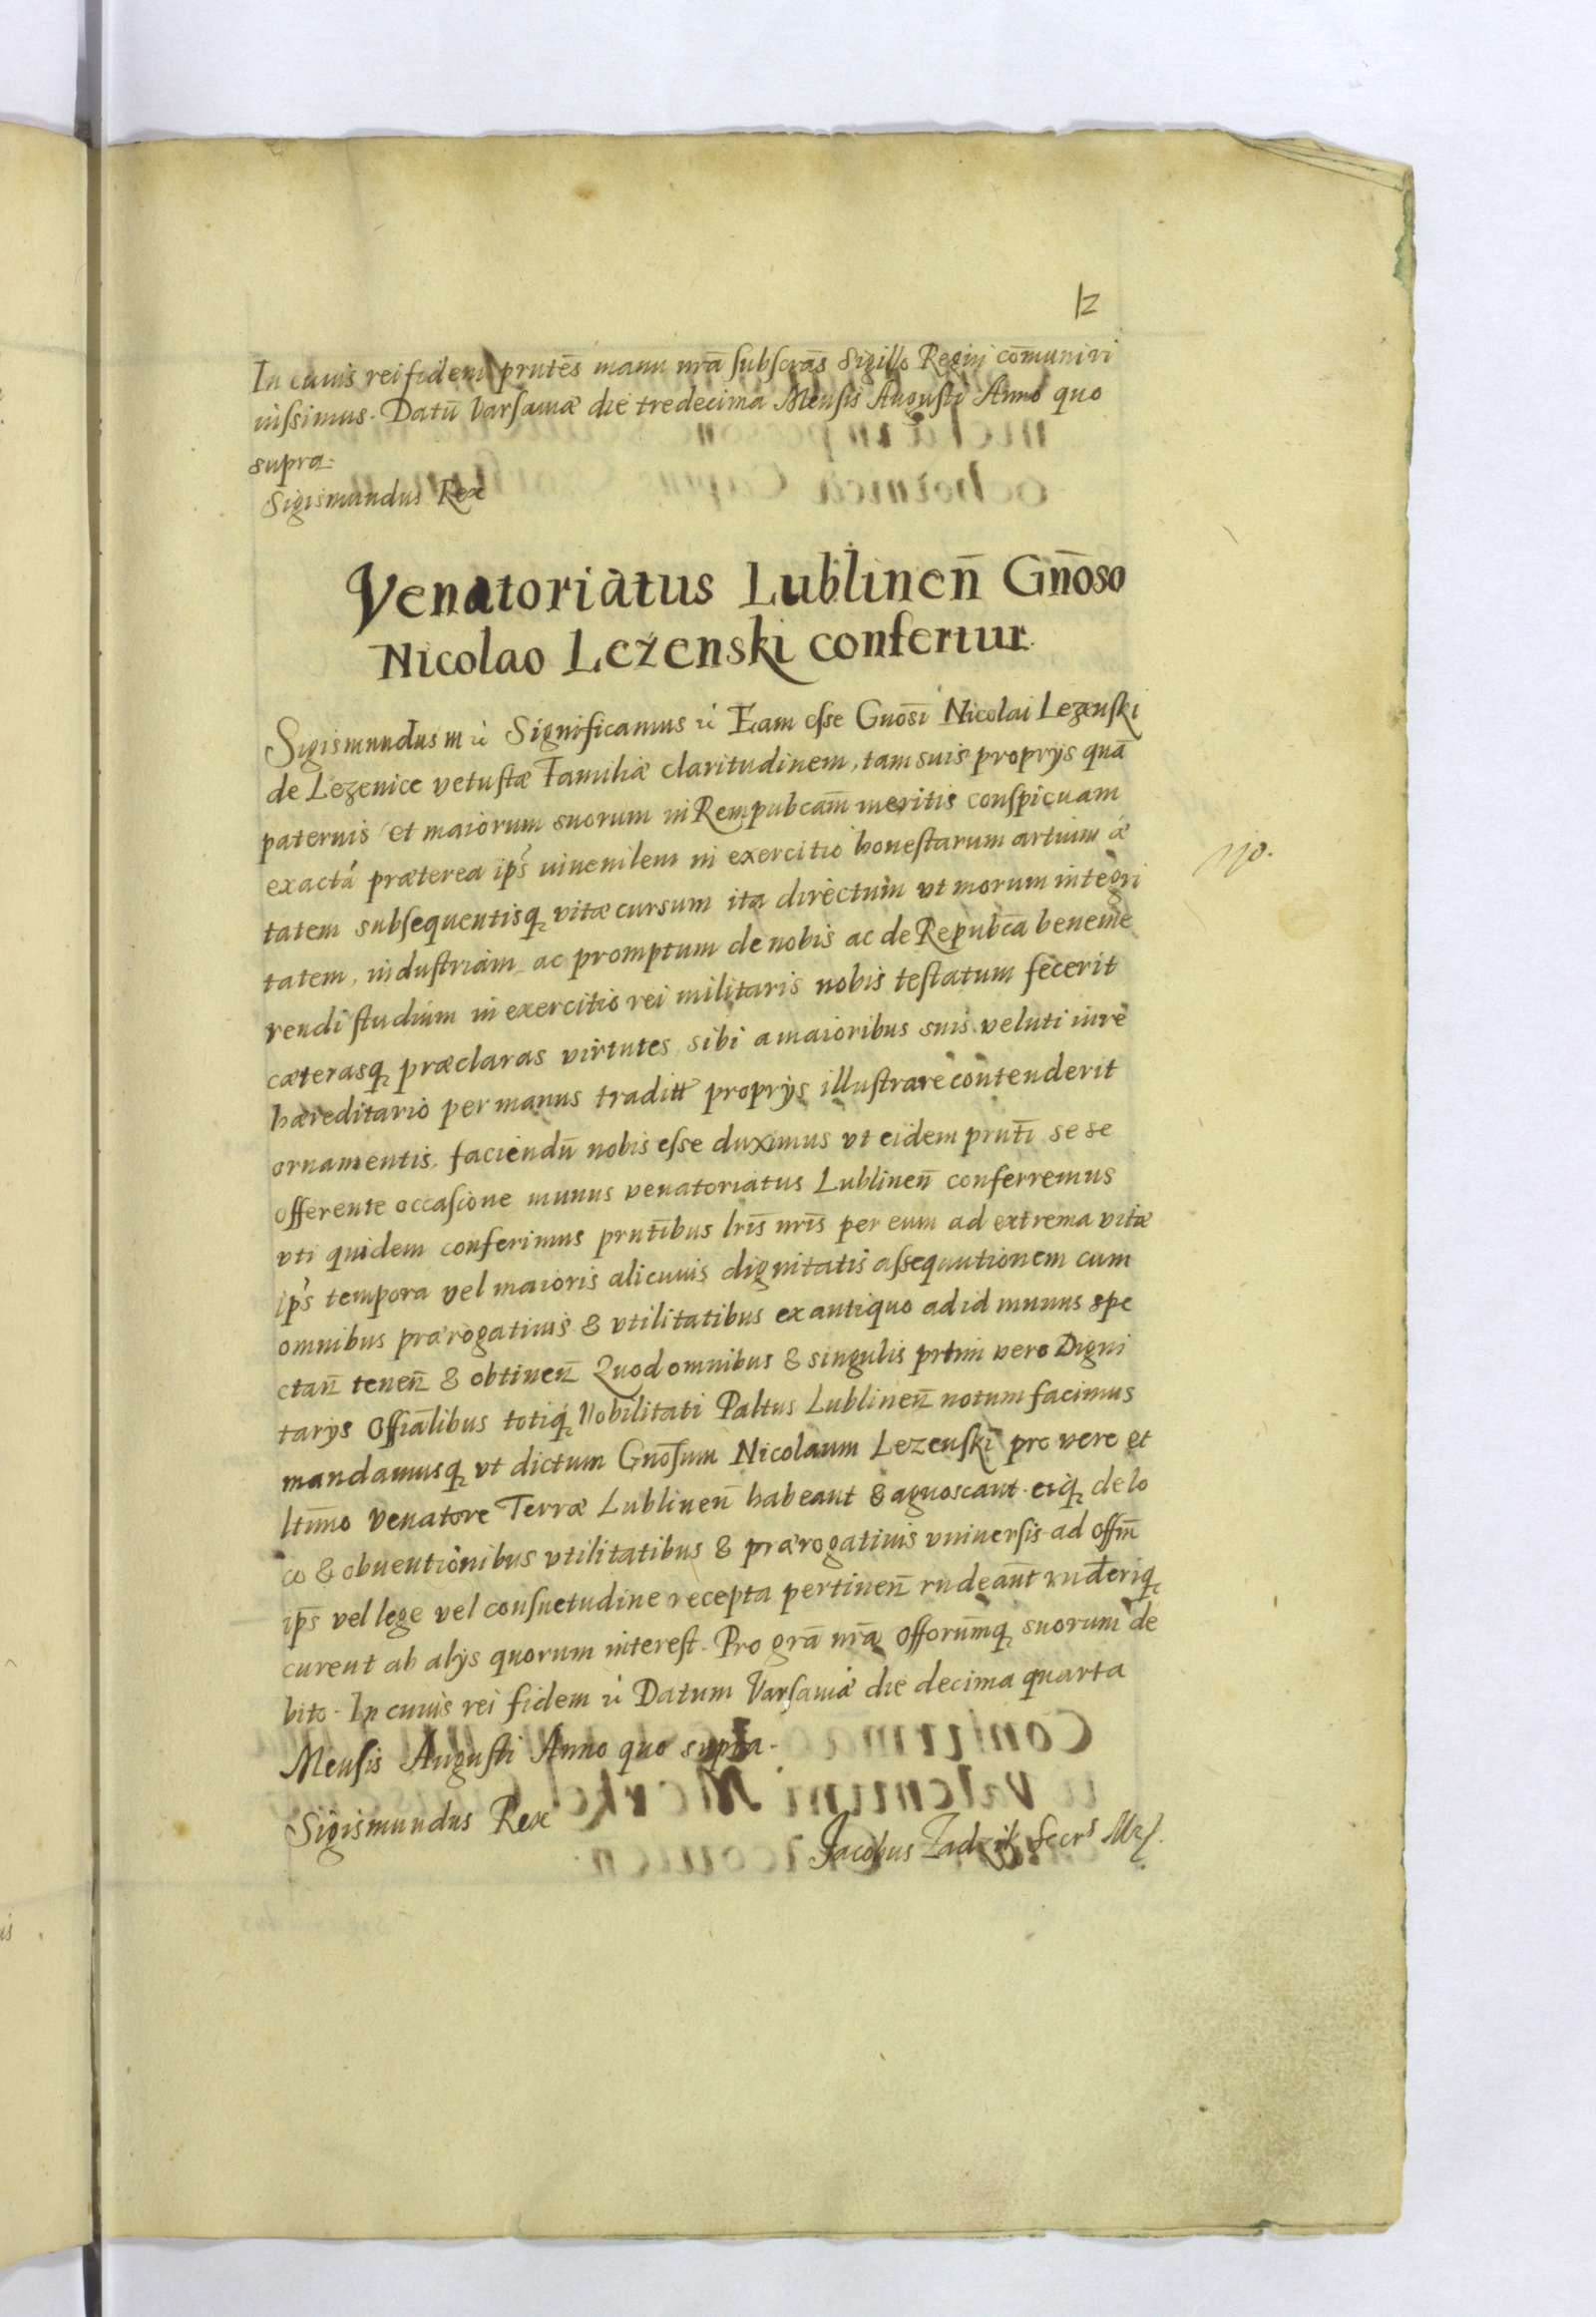 12
In cuius rei fidem prntēs manu nrā subscrās Sigillo Regni cōmuniri
iussimus. Datū Varsauiæ die tredecima Mensis Augusti Anno quo
supra.
Sigismundus Rex
Venatoriatus Lublinen̄ Gn̄oso
Nicolao Leżenski confertur.
Sigismundus III &c Significamus &c Eam esse Gnosī Nicolai Lezenski
de Lezenice vetustæ Familiæ claritudinem, tam suis proprys quā
paternis et maiorum suorum in Rempubcam̄ meritis conspicuam
exactā præterea ip̄s iuuenilem in exercitio honestarum artium æ
tatem subsequentisq₃ vitæ cursum ita directum vt morum integri
tatem, industriam ac promptum de nobis ac de Repubcā beneme
rendi studium in exercitio rei militaris nobis testatum fecerit
cæterasq₃ præclaras virtutes sibi a maioribus suis veluti iure
hæreditario per manus tradittas proprys illustrare contenderit
ornamentis. faciendū nobis esse duximus vt eidem prntī se se
offerente occasione munus venatoriatus Lublinen̄ conferremus
vti quidem conferimus prntibus lrīs nrīs per eum ad extrema vitæ
ip̄s tempora vel maioris alicuius dignitatis assequutionem cum
omnibus prærogatiuis & vtilitatibus ex antiquo ad id munus spe
ctan̄ tenen̄ & obtinen̄ Quod omnibus & singulis prtim vero Digni
tarys Offiālibus totiq₃ Nobilitati Paltus Lublinen̄ notum facimus
mandamusq₃ vt dictum Gnōsum Nicolaum Lezenski pro vero et
ltimo venatore Terræ Lublinen̄ habeant & agnoscant. eiq₃ de lo
co & obuentionibus vtilitatibus & prærogatiuis vniuersis ad offm̄
ip̄s vel lege vel consuetudine recepta pertinen̄ rndeānt rnderiq₃
curent ab alys quorum interest. Pro grā nrā offorumq₃ suorum de
bito. In cuius rei fidem &c Datum Varsauiæ die decima quarta
Mensis Augusti Anno quo supra.
Sigismundus Rex
Jacobus Zadzik Secrs